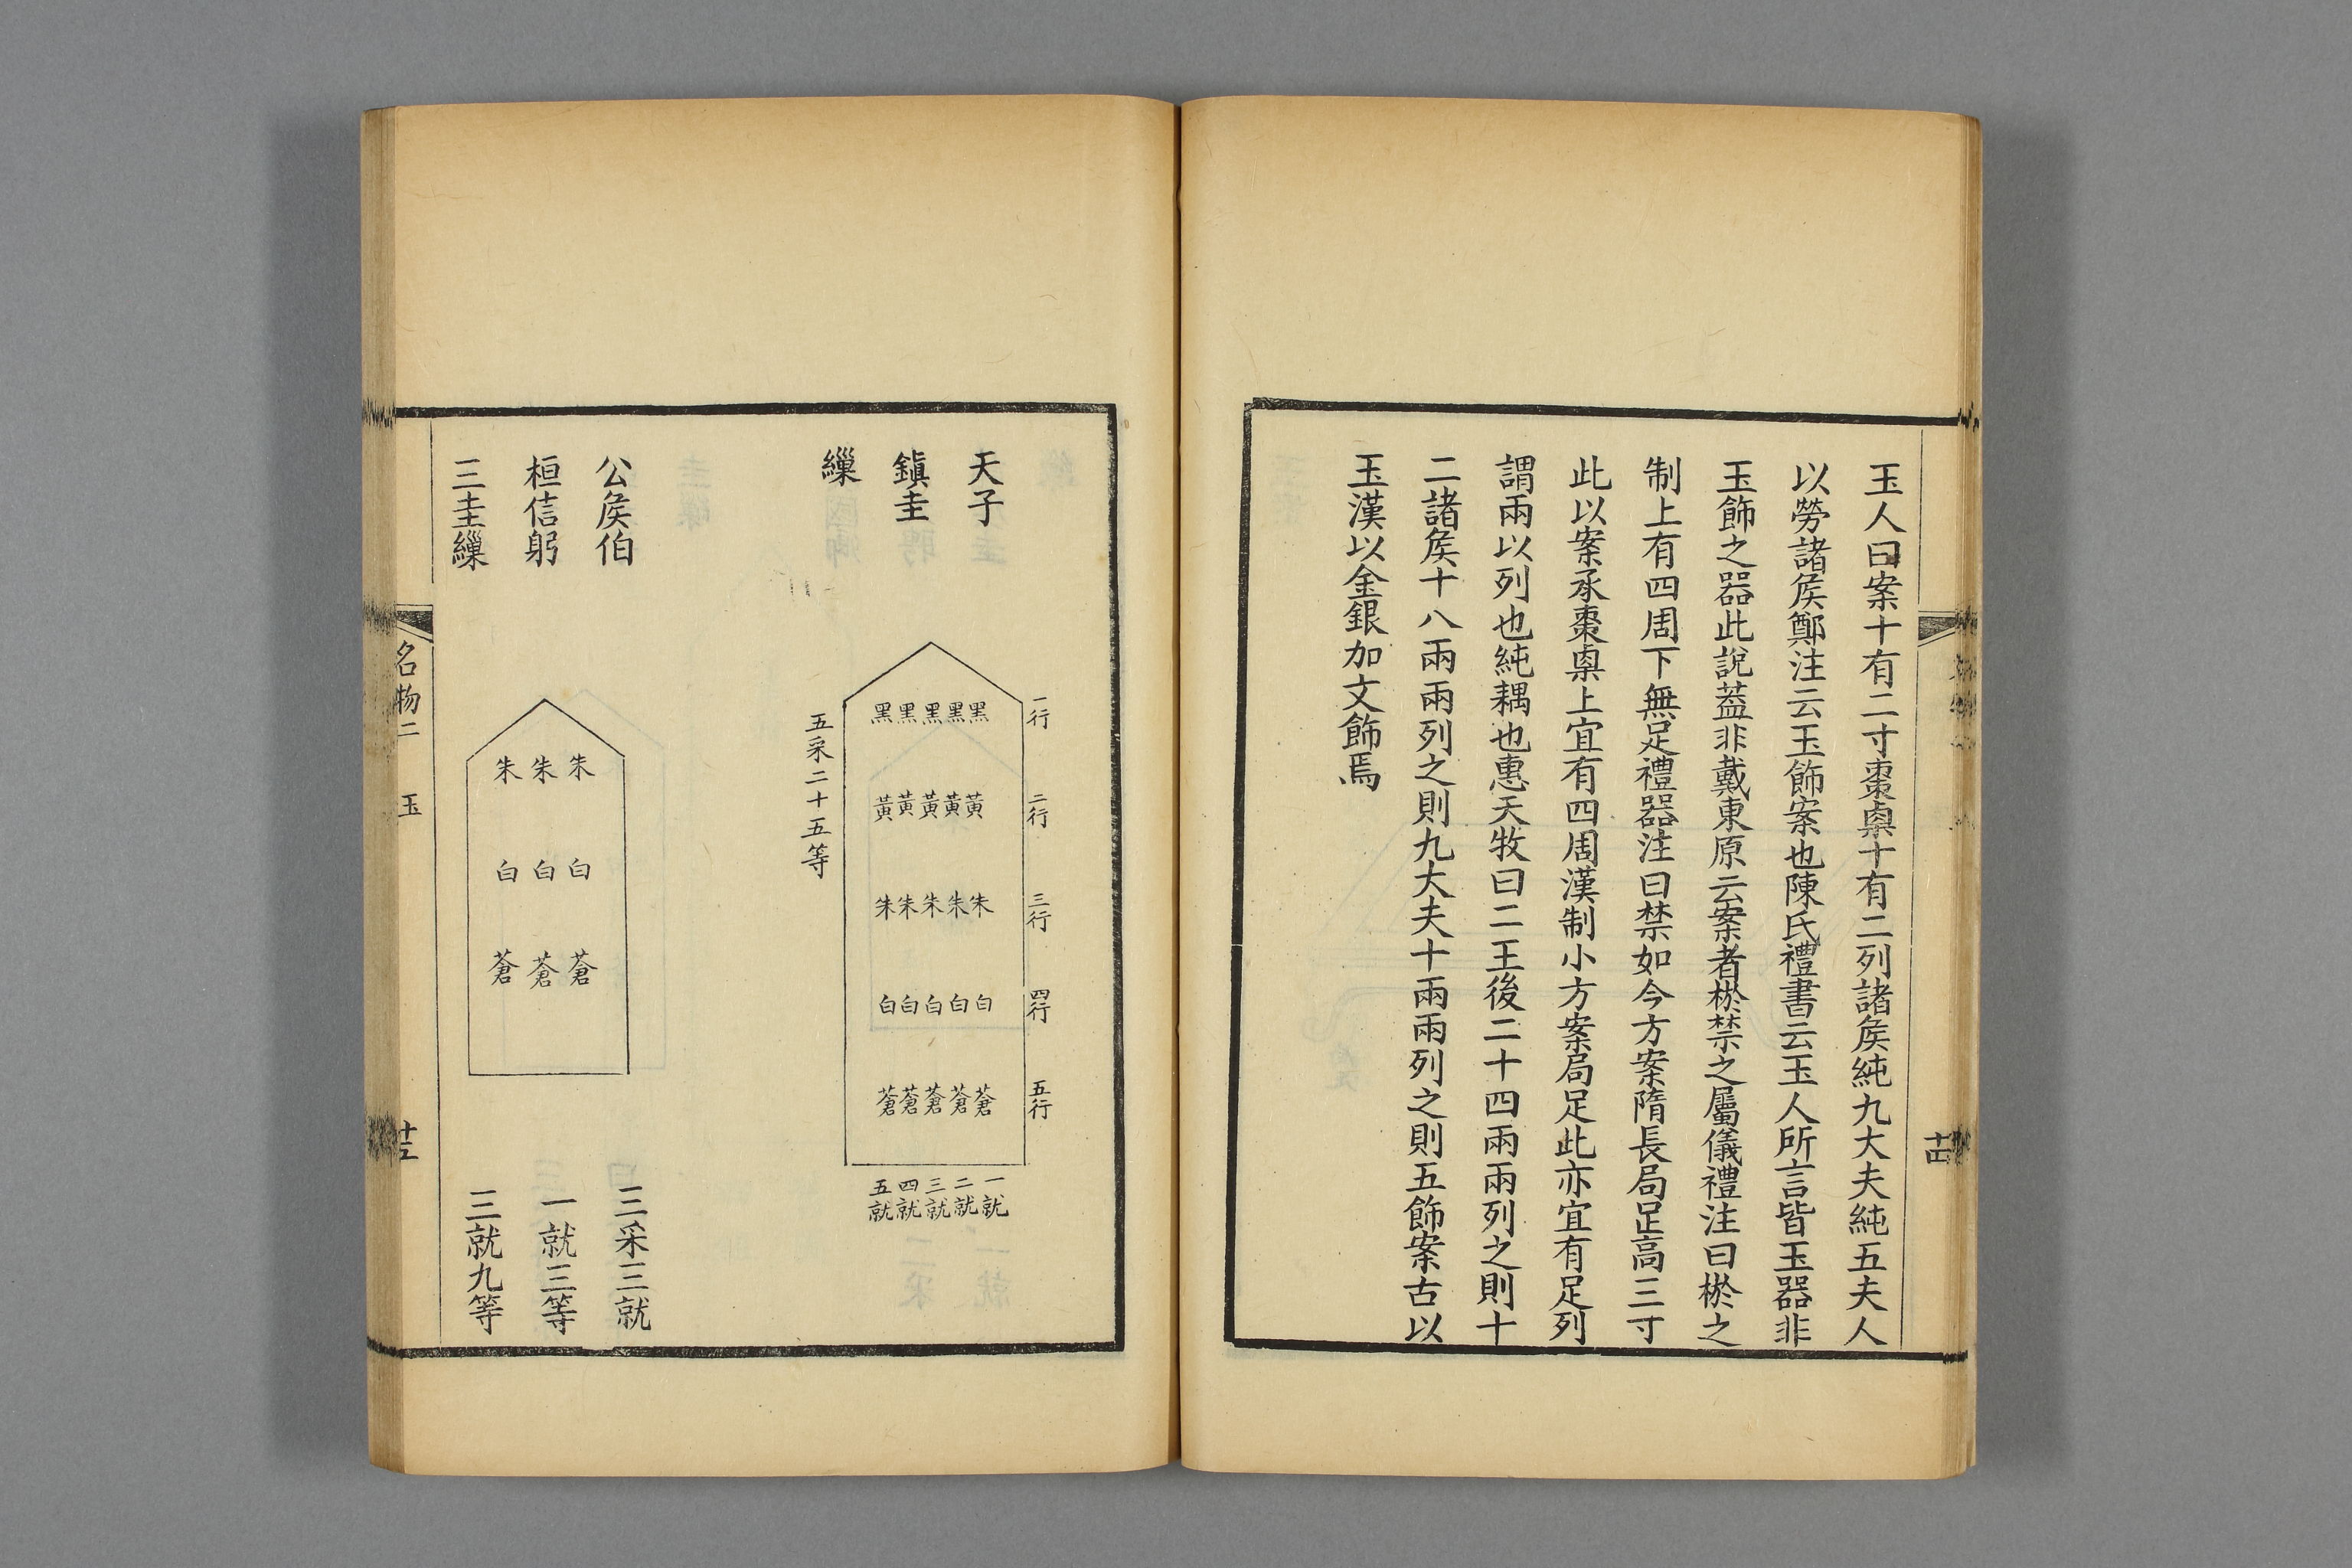 玉人曰案十有二寸棗㮚十有二列諸矦純九大夫純五夫人
以勞諸矦鄭注云玉飾案也陳氏禮書云玉人所言皆玉器非
玉飾之器此說蓋非戴東原云案者棜禁之屬儀禮注曰棜之
制上有四周下無足禮器注曰禁如今方案隋長局足高三寸
此以案承棗㮚上宜有四周漢制小方案局足此亦宜有足列
謂兩以列也純耦也惠天牧曰二王後二十四兩兩列之則十
二諸矦十八兩兩列之則九大夫十兩兩列之則五飾案古以
玉漢以金銀加文飾焉
十四
天子
鎮圭
繅
一行
二行
三行
四行
五行
黑黑黑黑黑
黃黃黃黃黃
朱朱朱朱朱
白白白白白
蒼蒼蒼蒼蒼
一就
二就
三就
四就
五就
五采二十五等
公矦伯
桓信躬
三圭繅
朱朱朱
白白白
蒼蒼蒼
三采三就
一就三等
三就九等
名物二
玉